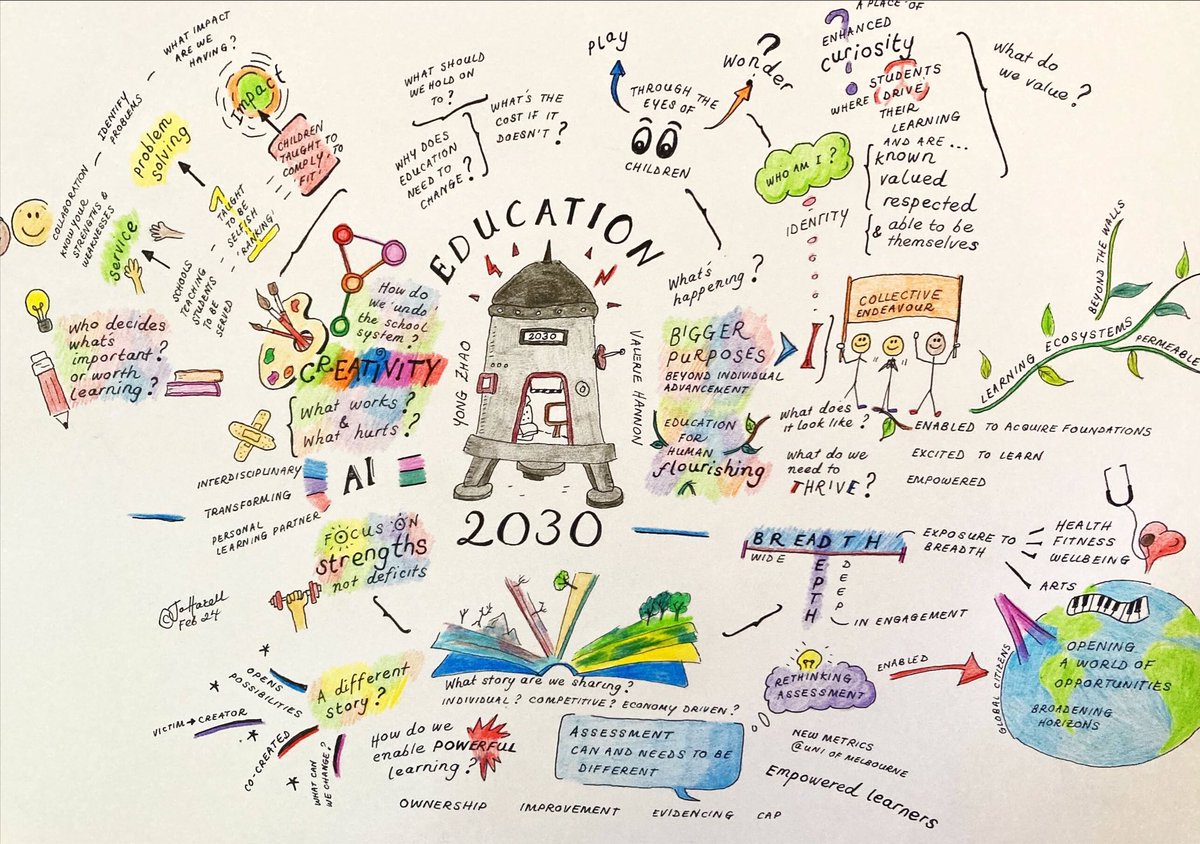 EDUCATION
2030
YONG ZHAO
VALERIE HANNON
2030
WHAT IMPACT
ARE WE
HAVING?
Impact
IDENTIFY
PROBLEMS
problem
solving
CHILDREN
TAUGHT TO
COMPLY TO
'FIT'
COLLABORATION
KNOW YOUR
STRENGTHS &
WEAKNESSES
service
TAUGHT
TO BE
SELFISH
'RANKING'
SCHOOLS
TEACHING
STUDENTS
TO BE
SERVED
Who decides
whats
important?
or worth
learning?
How do
we 'undo
the school
system?
CREATIVITY
What works?
&
What hurts?
INTERDISCIPLINARY
TRANSFORMING
PERSONAL
LEARNING PARTNER
AI
FOCUS ON
strengths
not deficits
©JoHarell
Feb 24
WHAT SHOULD
WE HOLD ON
TO?
WHY DOES
EDUCATION
NEED TO
CHANGE?
WHAT'S THE
COST IF IT
DOESN'T?
play
wonder
?
THROUGH THE
EYES OF
CHILDREN
A PLACE OF
ENHANCED
curiosity
WHERE
STUDENTS
DRIVE
THEIR
LEARNING
AND ARE ...
known
valued
respected
& able to be
themselves
What do
we value?
WHO AM I?
IDENTITY
What's
happening?
BIGGER
PURPOSES
BEYOND INDIVIDUAL
ADVANCEMENT
I
COLLECTIVE
ENDEAVOUR
BEYOND THE WALLS
LEARNING ECOSYSTEMS
PERMEABLE
EDUCATION
FOR
HUMAN
flourishing
What does
it look like?
ENABLED TO ACQUIRE FOUNDATIONS
EXCITED TO LEARN
EMPOWERED
What do we
need to
THRIVE?
BREADTH
WIDE
DEPTH
DEEP
EXPOSURE TO
BREADTH
HEALTH
FITNESS
WELLBEING
ARTS
IN ENGAGEMENT
RETHINKING
ASSESSMENT
ENABLED
GLOBAL CITIZENS
OPENING
A WORLD OF
OPPORTUNITIES
BROADENING
HORIZONS
OPENS
POSSIBILITIES
VICTIM → CREATOR
CO-CREATED
WHAT CAN
WE CHANGE?
A different
story?
What story are we sharing?
INDIVIDUAL? COMPETITIVE? ECONOMY DRIVEN?
How do we
enable POWERFUL
learning?
ASSESSMENT
CAN AND NEEDS TO BE
DIFFERENT
NEW METRICS
@UNI OF MELBOURNE
Empowered learners
OWNERSHIP IMPROVEMENT EVIDENCING CAP